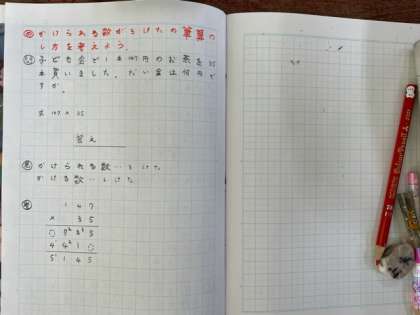 め かけられる数が3けたの筆算の
しかたを考えよう。
も 子ども会で1本147円のお茶を35
本買いました。だい金は何円で
すか。
式 147 × 35
答え
かけられる数…3けた
かける数…2けた
1 4 7
× 3 5
7 3 5
4 4 1 0
5 1 4 5